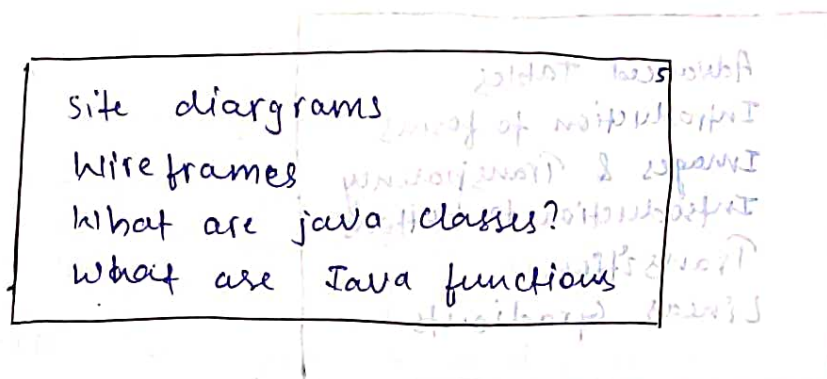 site diargrams
Wireframes
What are java classes?
What are Java functions